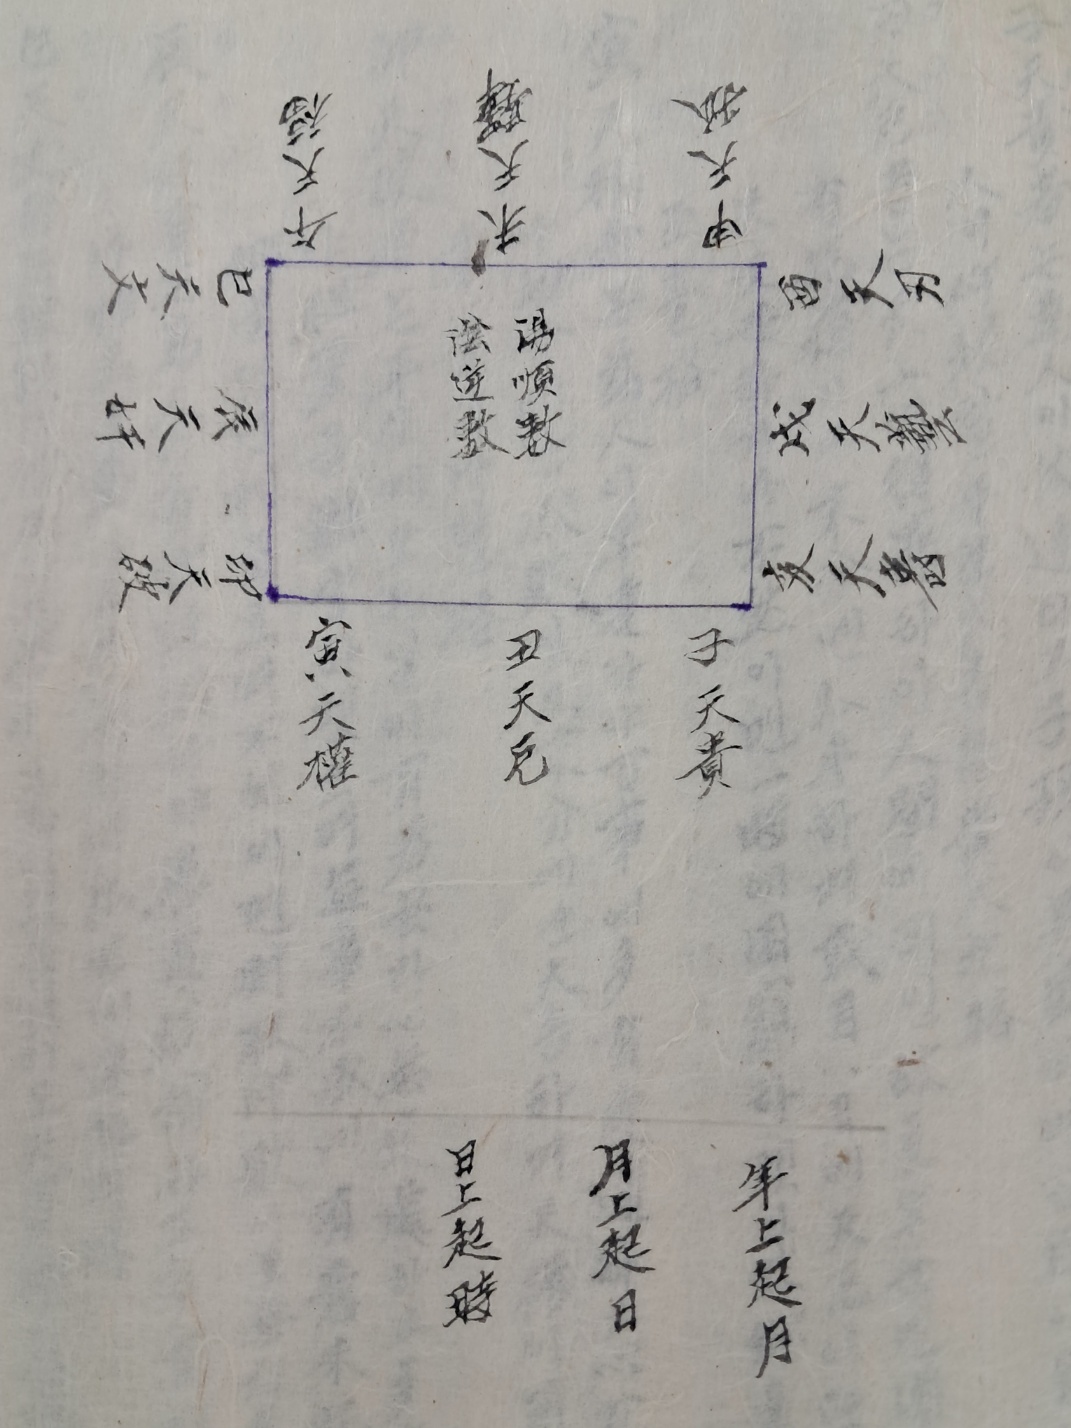 子天貴
丑天厄
寅天權
卯天破
辰天奸
巳天文
午天福
未天驛
申天孤
酉天刃
戌天藝
亥天壽
陽順數
陰逆數
年上起月
月上起日
日上起時